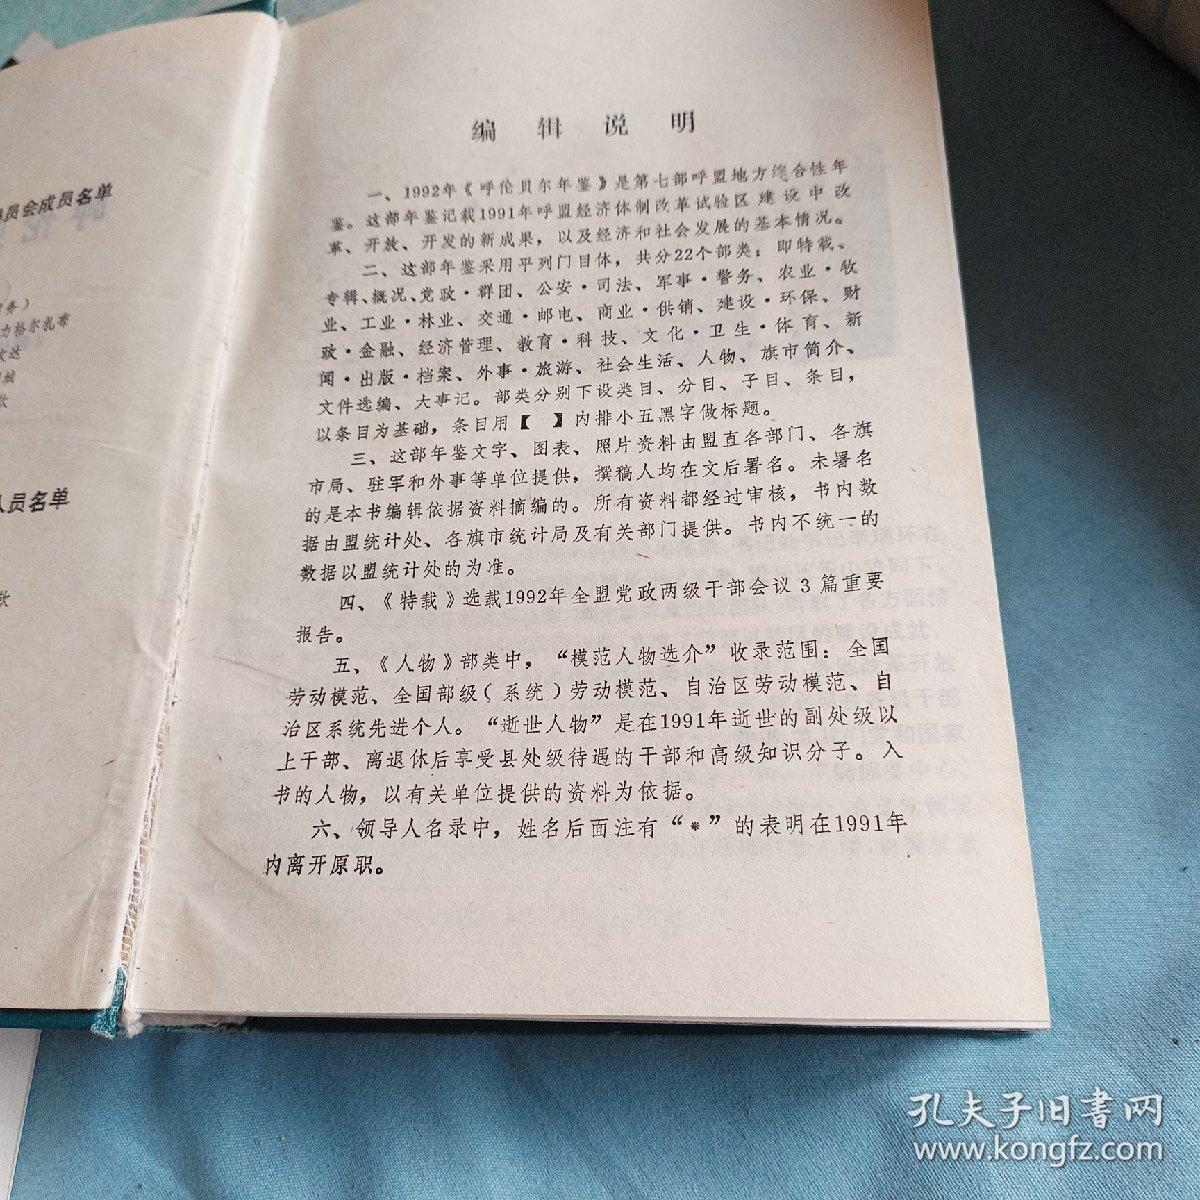 员会成员名单
力格尔扎布
人员名单
编辑说明
一、1992年《呼伦贝尔年鉴》是第七部呼盟地方综合性年
鉴。这部年鉴记载1991年呼盟经济体制改革试验区建设中改
革、开放、开发的新成果，以及经济和社会发展的基本情况。
二、这部年鉴采用平列门目体，共分22个部类：即特载、
专辑、概况、党政·群团、公安·司法、军事·警务、农业·牧
业、工业·林业、交通·邮电、商业·供销、建设·环保、财
政·金融、经济管理、教育·科技、文化·卫生·体育、新
闻·出版·档案、外事·旅游、社会生活、人物、旗市简介、
文件选编、大事记。部类分别下设类目、分目、子目、条目，
以条目为基础，条目用【　】内排小五黑字做标题。
三、这部年鉴文字、图表、照片资料由盟直各部门、各旗
市局、驻军和外事等单位提供，撰稿人均在文后署名。未署名
的是本书编辑依据资料摘编的。所有资料都经过审核，书内数
据由盟统计处、各旗市统计局及有关部门提供。书内不统一的
数据以盟统计处的为准。
四、《特载》选载1992年全盟党政两级干部会议3篇重要
报告。
五、《人物》部类中，“模范人物选介”收录范围：全国
劳动模范、全国部级（系统）劳动模范、自治区劳动模范、自
治区系统先进个人。“逝世人物”是在1991年逝世的副处级以
上干部、离退休后享受县处级待遇的干部和高级知识分子。入
书的人物，以有关单位提供的资料为依据。
六、领导人名录中，姓名后面注有“*”的表明在1991年
内离开原职。
孔夫子旧书网
www.kongfz.com